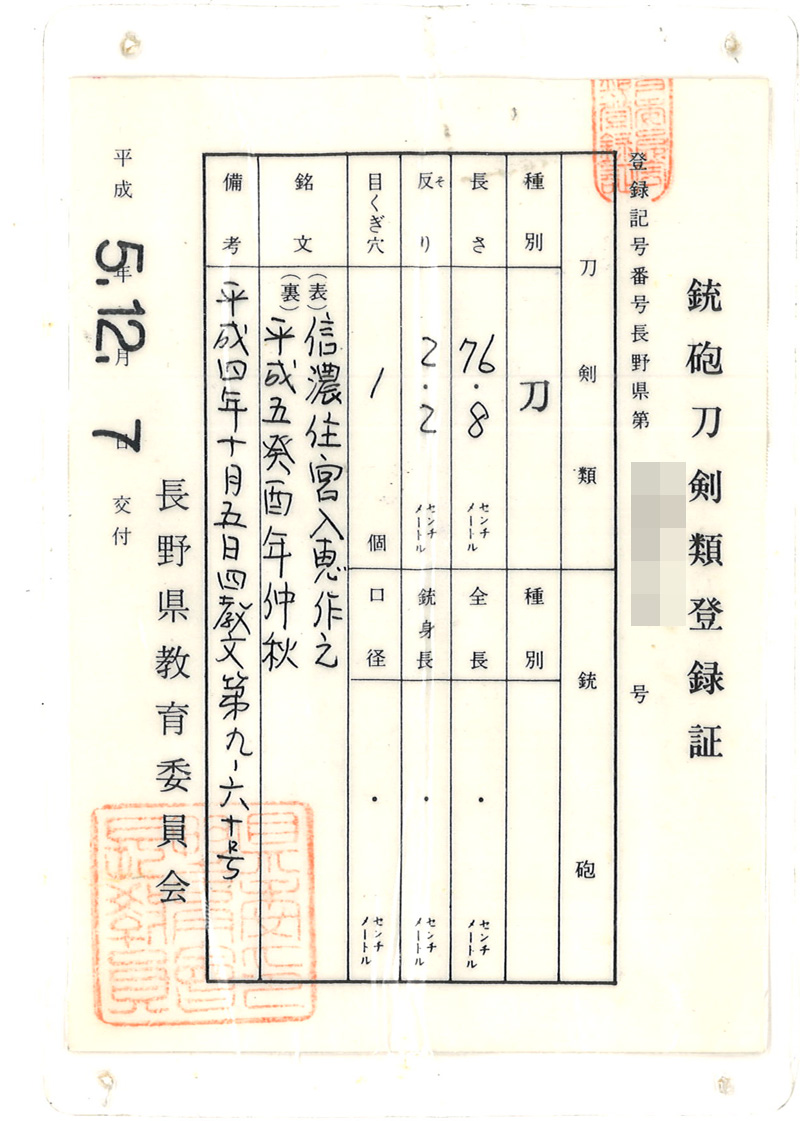 銃砲刀剣類登録証
登録記号番号長野県第 号
刀剣類
銃砲
種別 刀
長さ 76.8 センチメートル
反り そ 2.2 センチメートル
目くぎ穴 1 個
種別
全長 . センチメートル
銃身長 . センチメートル
口径 . センチメートル
銘文
(表)信濃住宮入恵作之
(裏)平成五癸酉年仲秋
備考 平成四年十月五日四教文第九-六十号
長野県教育委員会
平成 5.年 12.月 7日 交付